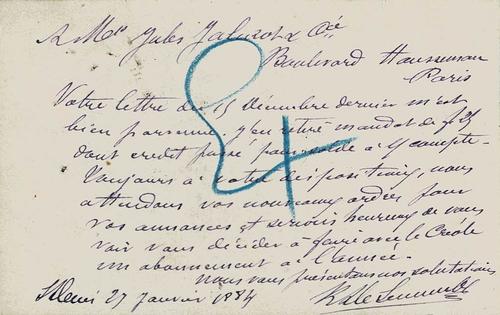 A MM Jules Jaluzot & Cie
Boulevard Haussmann
Paris
Votre lettre du 15 Décembre dernier m'est
bien parvenue, j'en retiré mandat de f 25
dont credit passé pour solde à compte.
Toujours à votre disposition, nous
attendons vos nouveaux ordres pour
vos annonces et serions heureux de vous
voir vous décider à faire avec le Créole
un abonnement à l'année.
Nous vous présentons nos salutations
St Denis 27 Janvier 1884